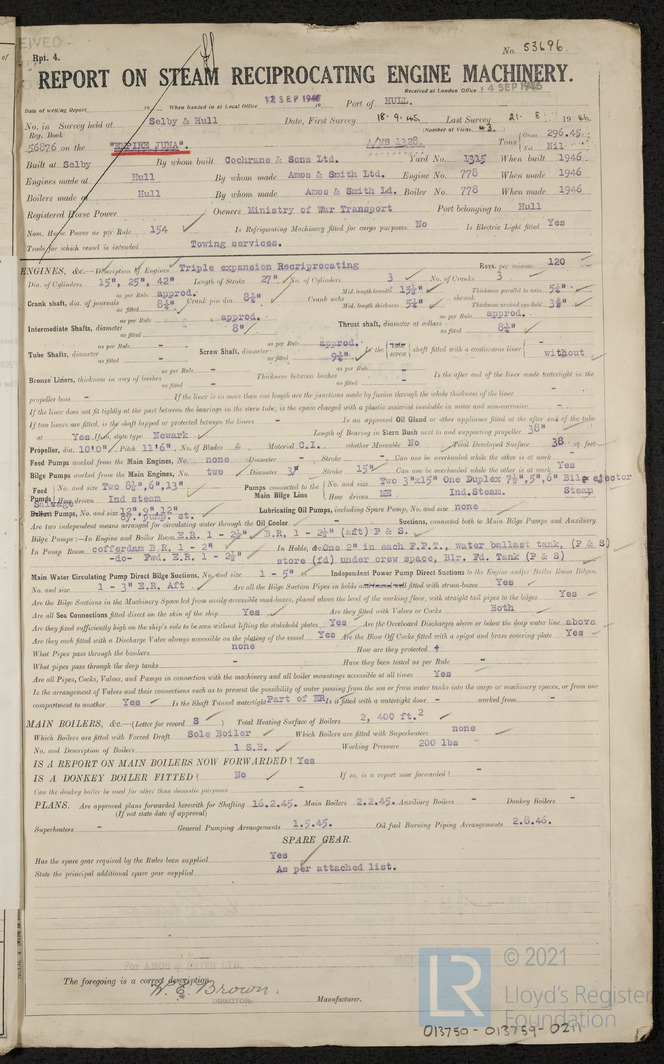 Rpt. 4.
No. 53696
REPORT ON STEAM RECIPROCATING ENGINE MACHINERY.
Received at London Office 14 SEP 1946
Date of writing Report 19 When handed in at Local Office 12 SEP 1946 19 Port of HULL.
No. in Survey held at Selby & Hull Date, First Survey 18.9.45. Last Survey 21.8. 1946.
Reg. Book (Number of Visits 43.)
56876 on the "EMPIRE JUNA". A/MS 1328. Tons Gross 296.45. Net Nil
Built at Selby By whom built Cochrane & Sons Ltd. Yard No. 1315 When built 1946
Engines made at Hull By whom made Amos & Smith Ltd. Engine No. 778 When made 1946
Boilers made at Hull By whom made Amos & Smith Ld. Boiler No. 778 When made 1946
Registered Horse Power Owners Ministry of War Transport Port belonging to Hull
Nom. Horse Power as per Rule 154 Is Refrigerating Machinery fitted for cargo purposes No Is Electric Light fitted Yes
Trade for which vessel is intended Towing services.
ENGINES, &c.—Description of Engines Triple expansion Recriprocating Revs. per minute 120
Dia. of Cylinders 15", 25", 42" Length of Stroke 27" No. of Cylinders 3 No. of Cranks 3
Crank shaft, dia. of journals as per Rule approd. as fitted 8¼" Crank pin dia. 8¼" Crank webs Mid. length breadth 15¼" Mid. length thickness 5¼" shrunk Thickness parallel to axis 5¼" Thickness around eye-hole 3⅞"
Intermediate Shafts, diameter as per Rule approd. as fitted 8" Thrust shaft, diameter at collars as per Rule approd. as fitted 8¼"
Tube Shafts, diameter as per Rule - as fitted - Screw Shaft, diameter as per Rule approd. as fitted 9¼" Is the tube screw shaft fitted with a continuous liner - without
Bronze Liners, thickness in way of bushes as per Rule - as fitted - Thickness between bushes as per Rule - as fitted - Is the after end of the liner made watertight in the
propeller boss - If the liner is in more than one length are the junctions made by fusion through the whole thickness of the liner -
If the liner does not fit tightly at the part between the bearings in the stern tube, is the space charged with a plastic material insoluble in water and non-corrosive -
If two liners are fitted, is the shaft lapped or protected between the liners - Is an approved Oil Gland or other appliance fitted at the after end of the tube
Yes If so, state type Newark Length of Bearing in Stern Bush next to and supporting propeller 38"
Propeller, dia. 10'0" Pitch 11'6" No. of Blades 4 Material C.I. whether Moveable No Total Developed Surface 38 sq. feet
Feed Pumps worked from the Main Engines, No. none Diameter - Stroke - Can one be overhauled while the other is at work -
Bilge Pumps worked from the Main Engines, No. two Diameter 3" Stroke 15" Can one be overhauled while the other is at work Yes
Feed Pumps No. and size Two 8½",6",13" Pumps connected to the Main Bilge Line No. and size Two 3"x15" One Duplex 7½",5",6" Bilge ejector
How driven Ind steam How driven ME Ind.Steam. Steam
Salvage Pumps, No. and size 12",9",12" Lubricating Oil Pumps, including Spare Pump, No. and size none
Are two independent means arranged for circulating water through the Oil Cooler - Suctions, connected both to Main Bilge Pumps and Auxiliary
Bilge Pumps:—In Engine and Boiler Room E.R. 1 - 2½" B.R. 1 - 2½" (aft) P & S.
In Pump Room cofferdam B.R. 1 - 2" In Holds, &c. One 2" in each F.P.T., water ballast tank, (P & S)
-do- Fwd. E.R. 1 - 2½" store (fd) under crew space, Blr. Fd. Tank (P & S)
Main Water Circulating Pump Direct Bilge Suctions, No. and size 1 - 5" Independent Power Pump Direct Suctions to the Engine and/or Boiler Room Bilges,
No. and size 1 - 3" E.R. Aft Are all the Bilge Suction Pipes in holds fitted with strum-boxes Yes
Are the Bilge Suctions in the Machinery Space led from easily accessible mud-boxes, placed above the level of the working floor, with straight tail pipes to the bilges Yes
Are all Sea Connections fitted direct on the skin of the ship Yes Are they fitted with Valves or Cocks Both
Are they fixed sufficiently high on the ship's side to be seen without lifting the stokehold plates Yes Are the Overboard Discharges above or below the deep water line above
Are they each fitted with a Discharge Valve always accessible on the plating of the vessel Yes Are the Blow Off Cocks fitted with a spigot and brass covering plate Yes
What Pipes pass through the bunkers none How are they protected -
What pipes pass through the deep tanks - Have they been tested as per Rule -
Are all Pipes, Cocks, Valves, and Pumps in connection with the machinery and all boiler mountings accessible at all times Yes
Is the arrangement of Valves and their connections such as to prevent the possibility of water passing from the sea or from water tanks into the cargo or machinery spaces, or from one
compartment to another Yes Is the Shaft Tunnel watertight Part of ER. Is it fitted with a watertight door - worked from -
MAIN BOILERS, &c.—(Letter for record S) Total Heating Surface of Boilers 2,400 ft.²
Which Boilers are fitted with Forced Draft Sole Boiler Which Boilers are fitted with Superheaters none
No. and Description of Boilers 1 S.B. Working Pressure 200 lbs
IS A REPORT ON MAIN BOILERS NOW FORWARDED? Yes
IS A DONKEY BOILER FITTED? No If so, is a report now forwarded? -
Can the donkey boiler be used for other than domestic purposes -
PLANS. Are approved plans forwarded herewith for Shafting 16.2.45. Main Boilers 2.2.45. Auxiliary Boilers - Donkey Boilers -
(If not state date of approval)
Superheaters - General Pumping Arrangements 1.5.45. Oil fuel Burning Piping Arrangements 2.8.46.
SPARE GEAR.
Has the spare gear required by the Rules been supplied Yes
State the principal additional spare gear supplied As per attached list.
For AMOS & SMITH LTD.
The foregoing is a correct description,
W. E. Brown.
DIRECTOR. Manufacturer.
LR
© 2021
Lloyd's Register
Foundation
013750-013759-0211